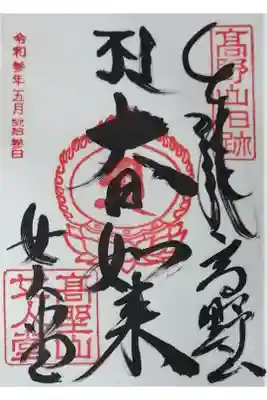 高野山旧跡
高野山
大日如来
女人堂
令和参年五月
高野山
女人堂